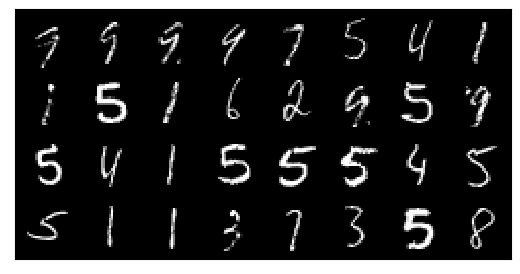 7 9 9 9 7 5 4 1
1 5 1 6 2 9 5 9
5 4 1 5 5 5 4 5
5 1 1 3 7 3 5 8